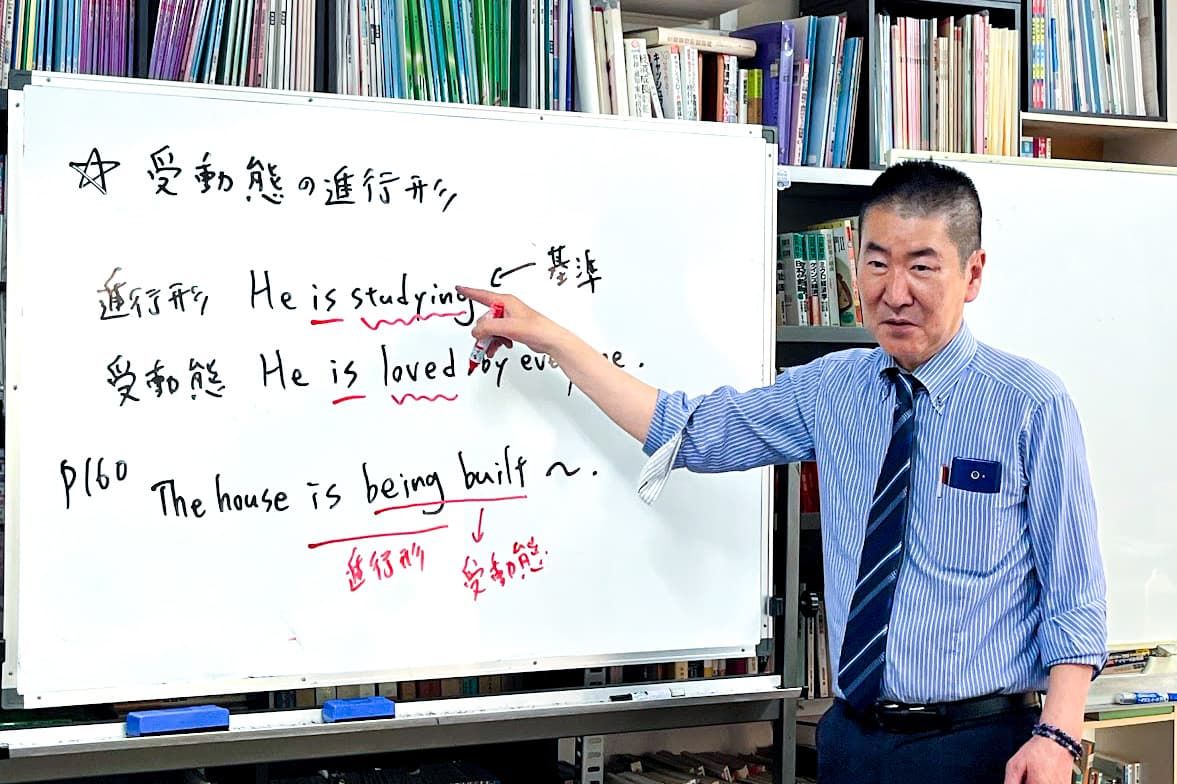 ☆ 受動態の進行形
進行形 He is studying ← 基準
受動態 He is loved by
P160 The house is being built ～.
進行形 受動態